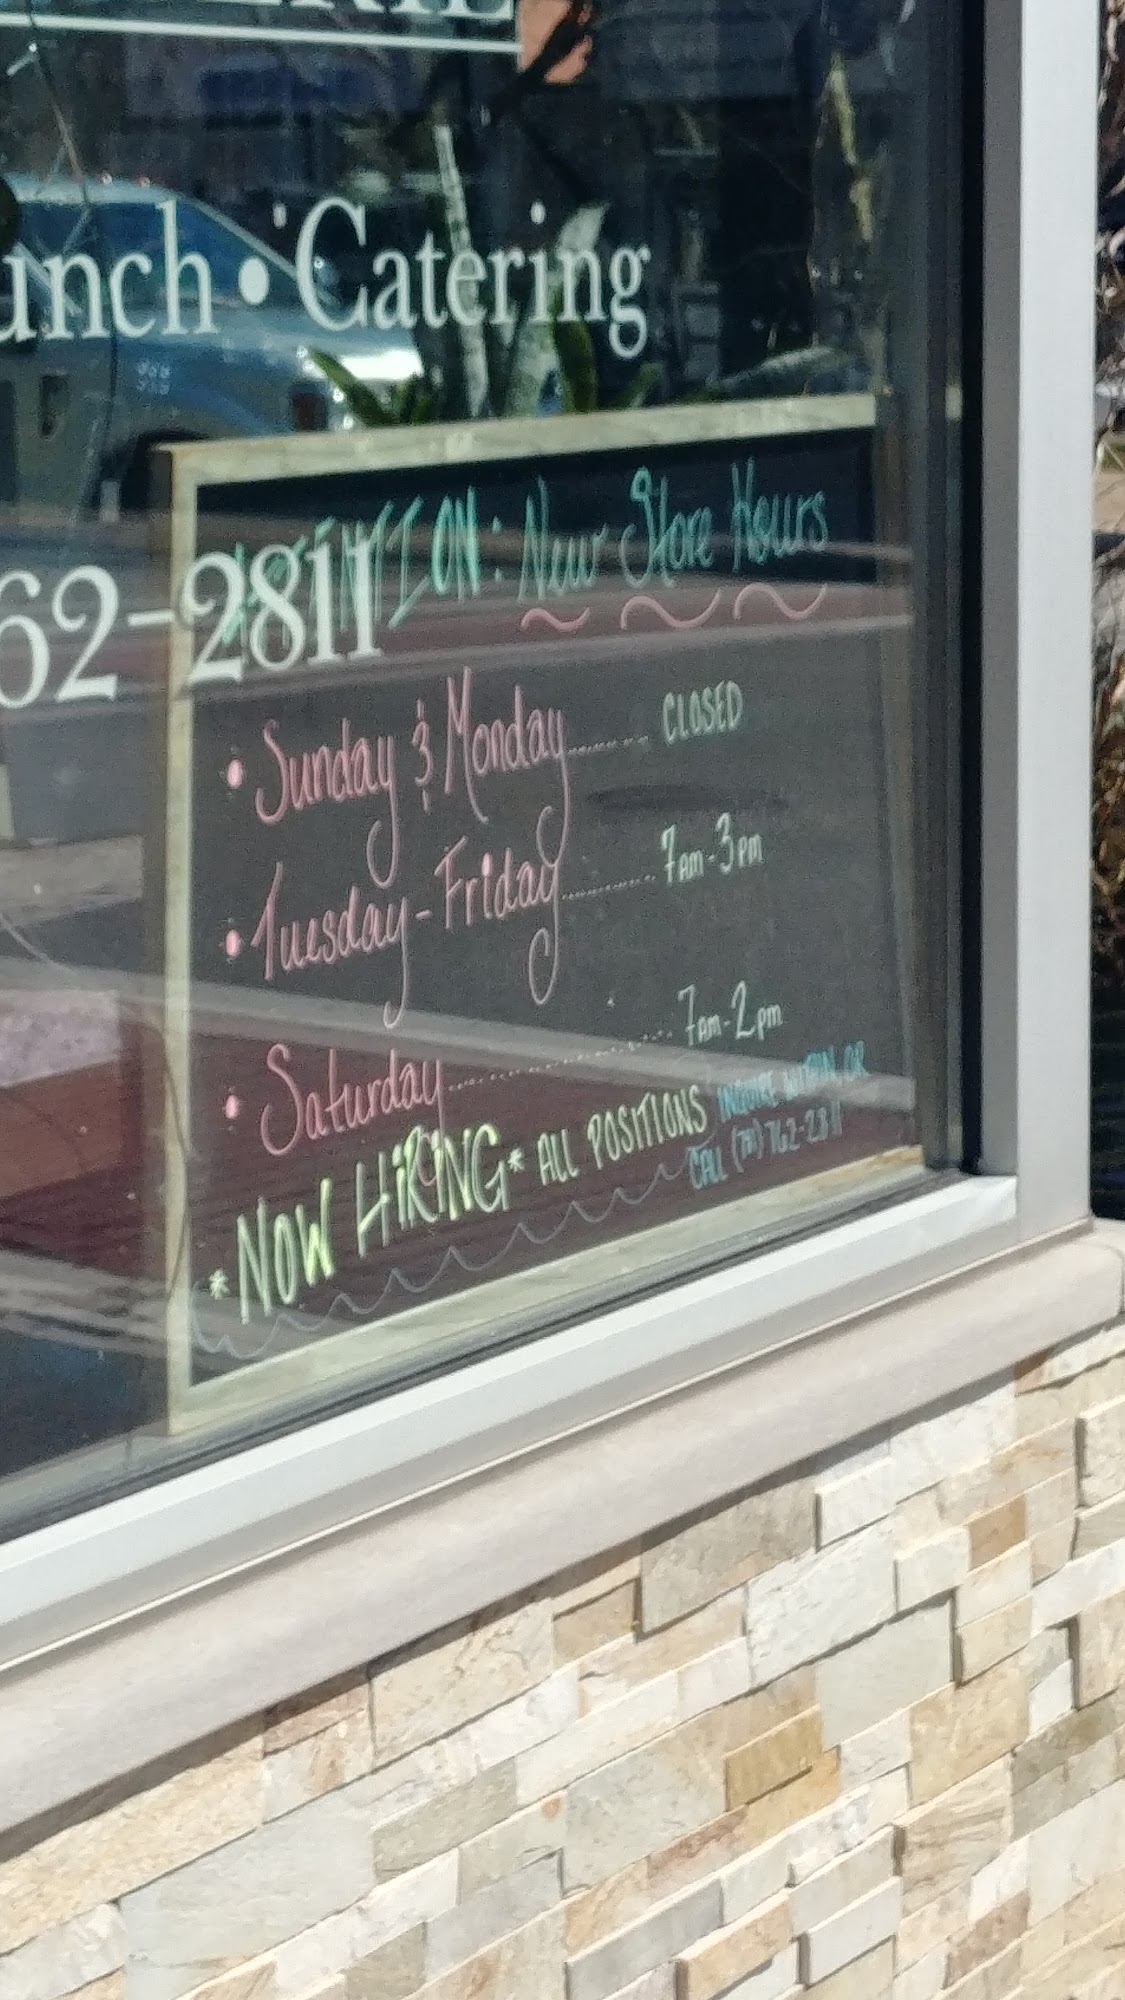 unch • Catering
62-2811
ATTENTION: New Store Hours
• Sunday & Monday........ CLOSED
• Tuesday - Friday.......... 7AM - 3PM
• Saturday.................... 7AM - 2PM
*NOW HiRiNG* ALL POSITIONS
INQUIRE WITHIN, OR
CALL 762-2811